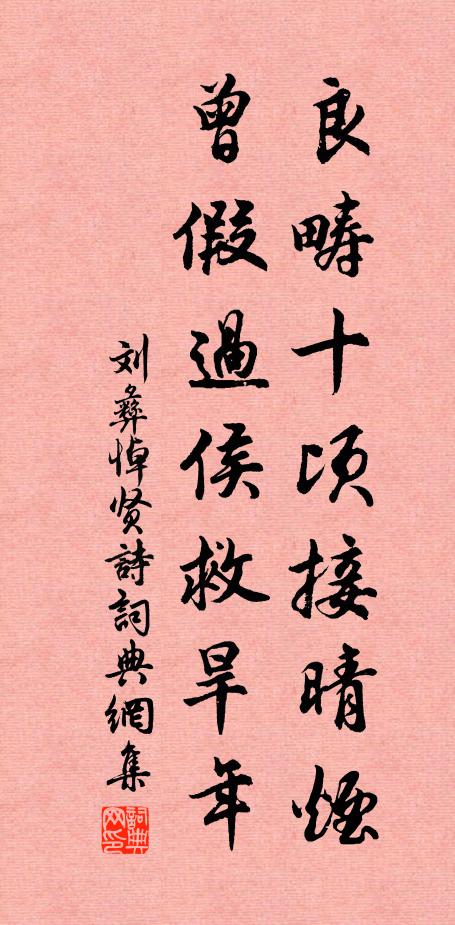 良畴十顷接晴烟
曾假過侯救旱年
刘彝悼贤詩詞典網集
詞典网印